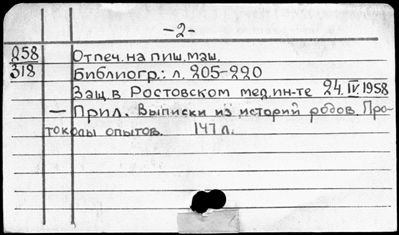 -2-
258 Отпеч. на пиш. маш.
318 Библиогр.: л. 205-220
Защ. в Ростовском мед. ин-те 24.IV.1958
— Прил. Выписки из историй родов. Про-
токолы опытов. 147 л.